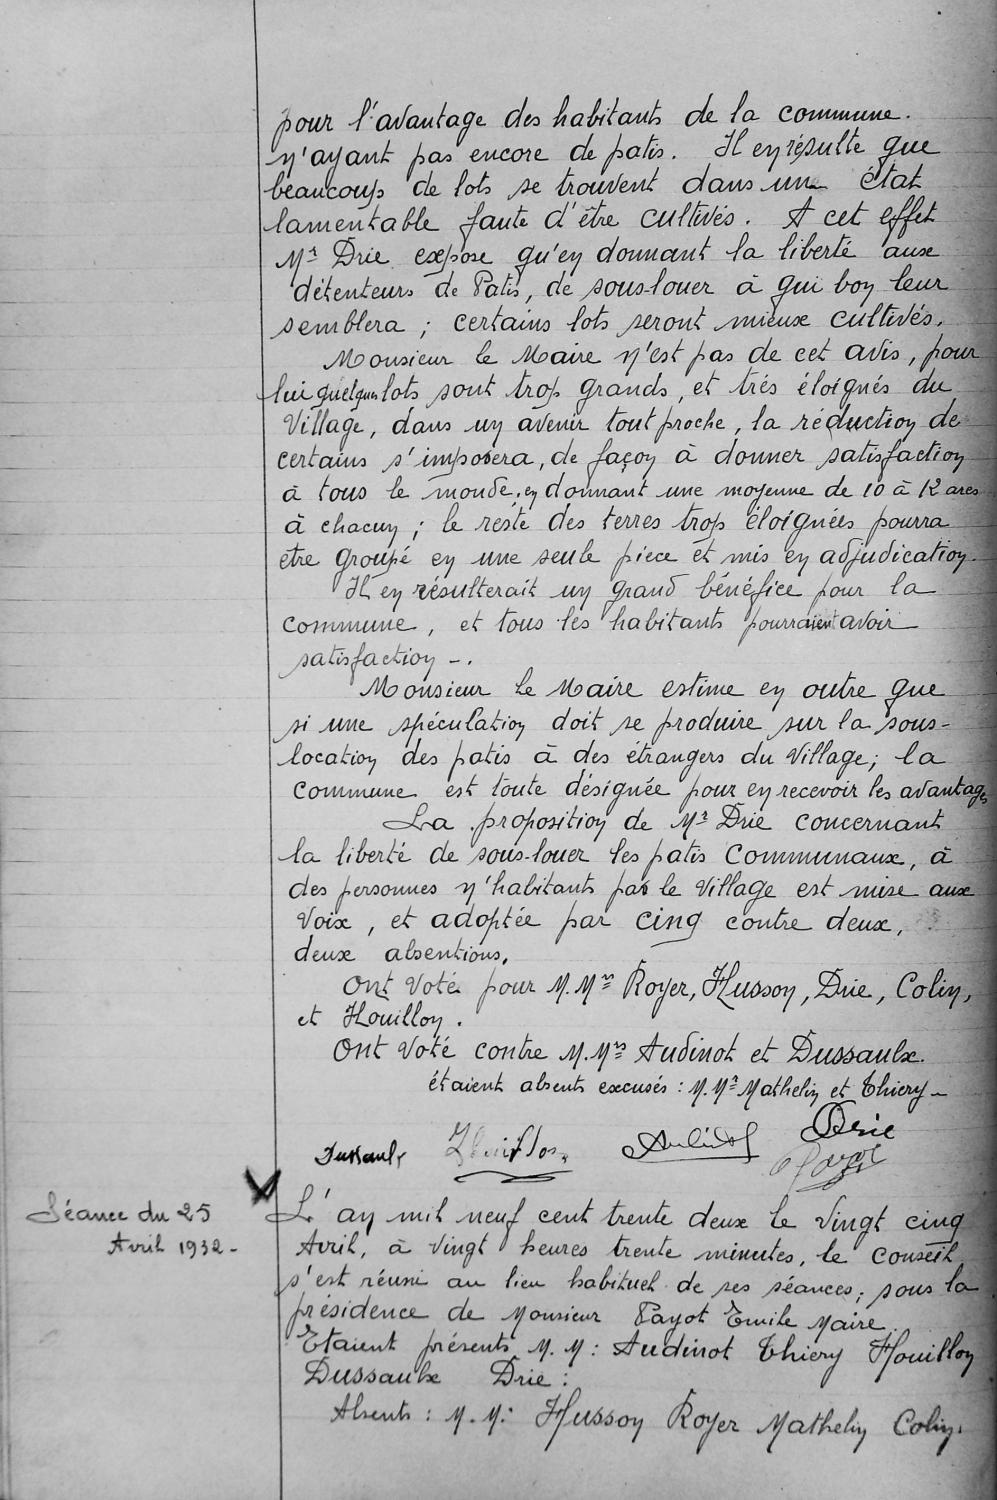 pour l'avantage des habitants de la commune.
n'ayant pas encore de patis. Il en résulte que
beaucoup de lots se trouvent dans un état
lamentable faute d'être cultivés. A cet effet
Mr Drie expose qu'en donnant la liberté aux
détenteurs de Patis, de sous-louer à qui bon leur
semblera ; certains lots seront mieux cultivés.
Monsieur le Maire n'est pas de cet avis, pour
lui quelques lots sont trop grands, et très éloignés du
Village, dans un avenir tout proche, la réduction de
certains s'imposera, de façon à donner satisfaction
à tous le monde, en donnant une moyenne de 10 à 12 ares
à chacun ; le reste des terres trop éloignées pourra
être groupé en une seule pièce et mis en adjudication.
Il en résulterait un grand bénéfice pour la
commune, et tous les habitants pourraient avoir
satisfaction -.
Monsieur le Maire estime en outre que
si une spéculation doit se produire sur la sous-
location des patis à des étrangers du Village; la
commune est toute désignée pour en recevoir les avantages
La proposition de Mr Drie concernant
la liberté de sous-louer les patis communaux, à
des personnes n'habitants pas le Village est mise aux
Voix, et adoptée par cinq contre deux,
deux absentions.
Ont Voté pour M.Mrs Royer, Husson, Drie, Colin,
et Houillon.
Ont Voté contre M.Mrs Audinot et Dussaulx.
étaient absents excusés : M.Mr Mathelin et Thiery -
Dussaulx Houillon Audinot Drie
Payot
Séance du 25
Avril 1932 -
L'an mil neuf cent trente deux le Vingt cinq
Avril, à Vingt heures trente minutes, le Conseil
s'est réuni au lieu habituel de ses séances; sous la
présidence de Monsieur Payot Emile Maire.
Etaient présents M.M : Audinot Thiery Houillon
Dussaulx Drie :
Absents : M.M: Husson Royer Mathelin Colin.